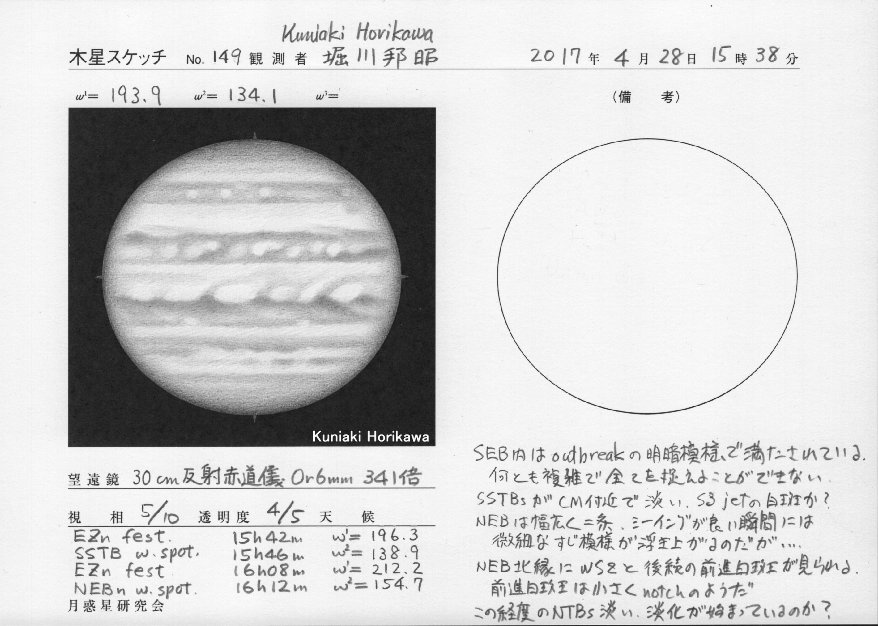 Kuniaki Horikawa
木星スケッチ No. 149 観測者 堀川邦昭 2017年 4月 28日 15時 38分
ω¹= 193.9 ω²= 134.1 ω³=
(備 考)
Kuniaki Horikawa
望遠鏡 30cm反射赤道儀 Or6mm 341倍
視 相 5/10 透明度 4/5 天 候
EZn fest. 15h42m ω¹= 196.3
SSTB w.spot. 15h46m ω²= 138.9
EZn fest 16h08m ω¹= 212.2
NEBn w.spot. 16h12m ω²= 154.7
月惑星研究会
SEB内はoutbreakの明暗模様で満たされている.
何とも複雑で全てを捉えることができない.
SSTBsがCM付近で淡い. S3 jetの白斑か?
NEBは幅広く二条. シーイングが良い瞬間には
微細なすじ模様が浮き上がるのだが….
NEB北縁にWSZと後続の前進白斑が見られる.
前進白斑は小さくnotchのようだ
この経度のNTBs淡い. 淡化が始まっているのか?